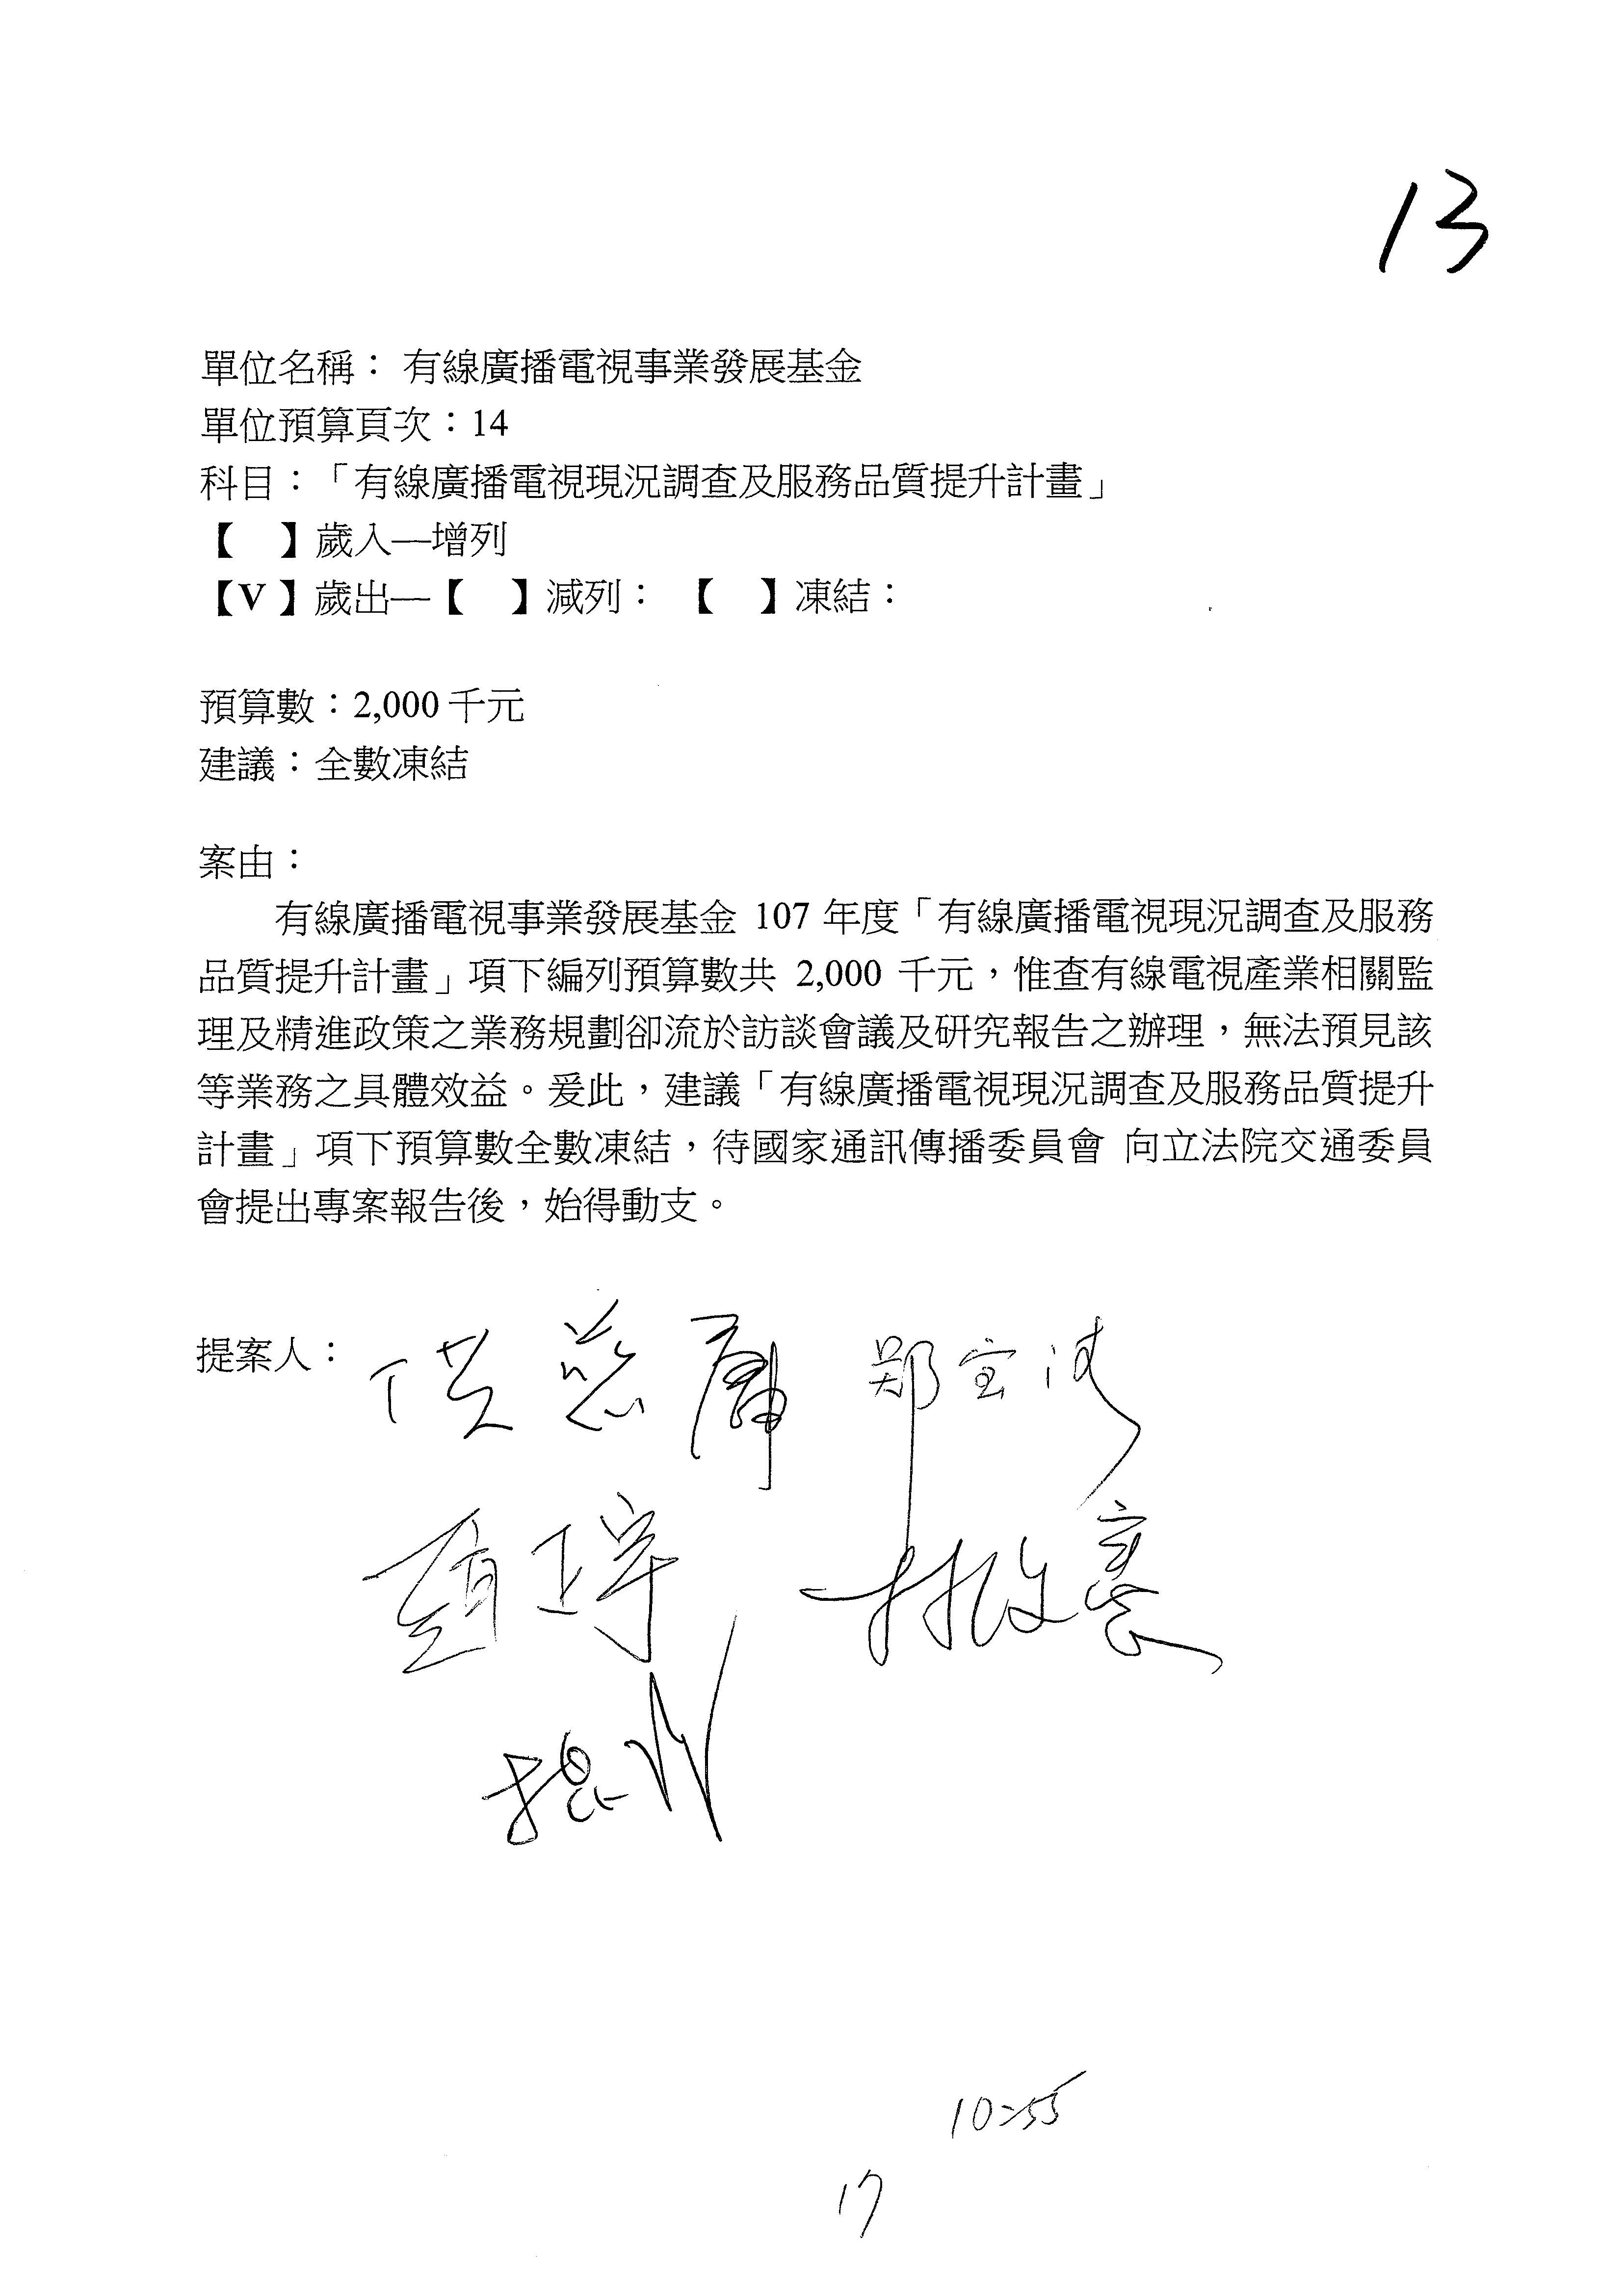 13
單位名稱： 有線廣播電視事業發展基金
單位預算頁次：14
科目：「有線廣播電視現況調查及服務品質提升計畫」
【　】歲入—增列
【V】歲出—【　】減列： 【　】凍結：
預算數：2,000 千元
建議：全數凍結
案由：
有線廣播電視事業發展基金 107 年度「有線廣播電視現況調查及服務
品質提升計畫」項下編列預算數共 2,000 千元，惟查有線電視產業相關監
理及精進政策之業務規劃卻流於訪談會議及研究報告之辦理，無法預見該
等業務之具體效益。爰此，建議「有線廣播電視現況調查及服務品質提升
計畫」項下預算數全數凍結，待國家通訊傳播委員會 向立法院交通委員
會提出專案報告後，始得動支。
提案人：
鄭宝清
10:55
17